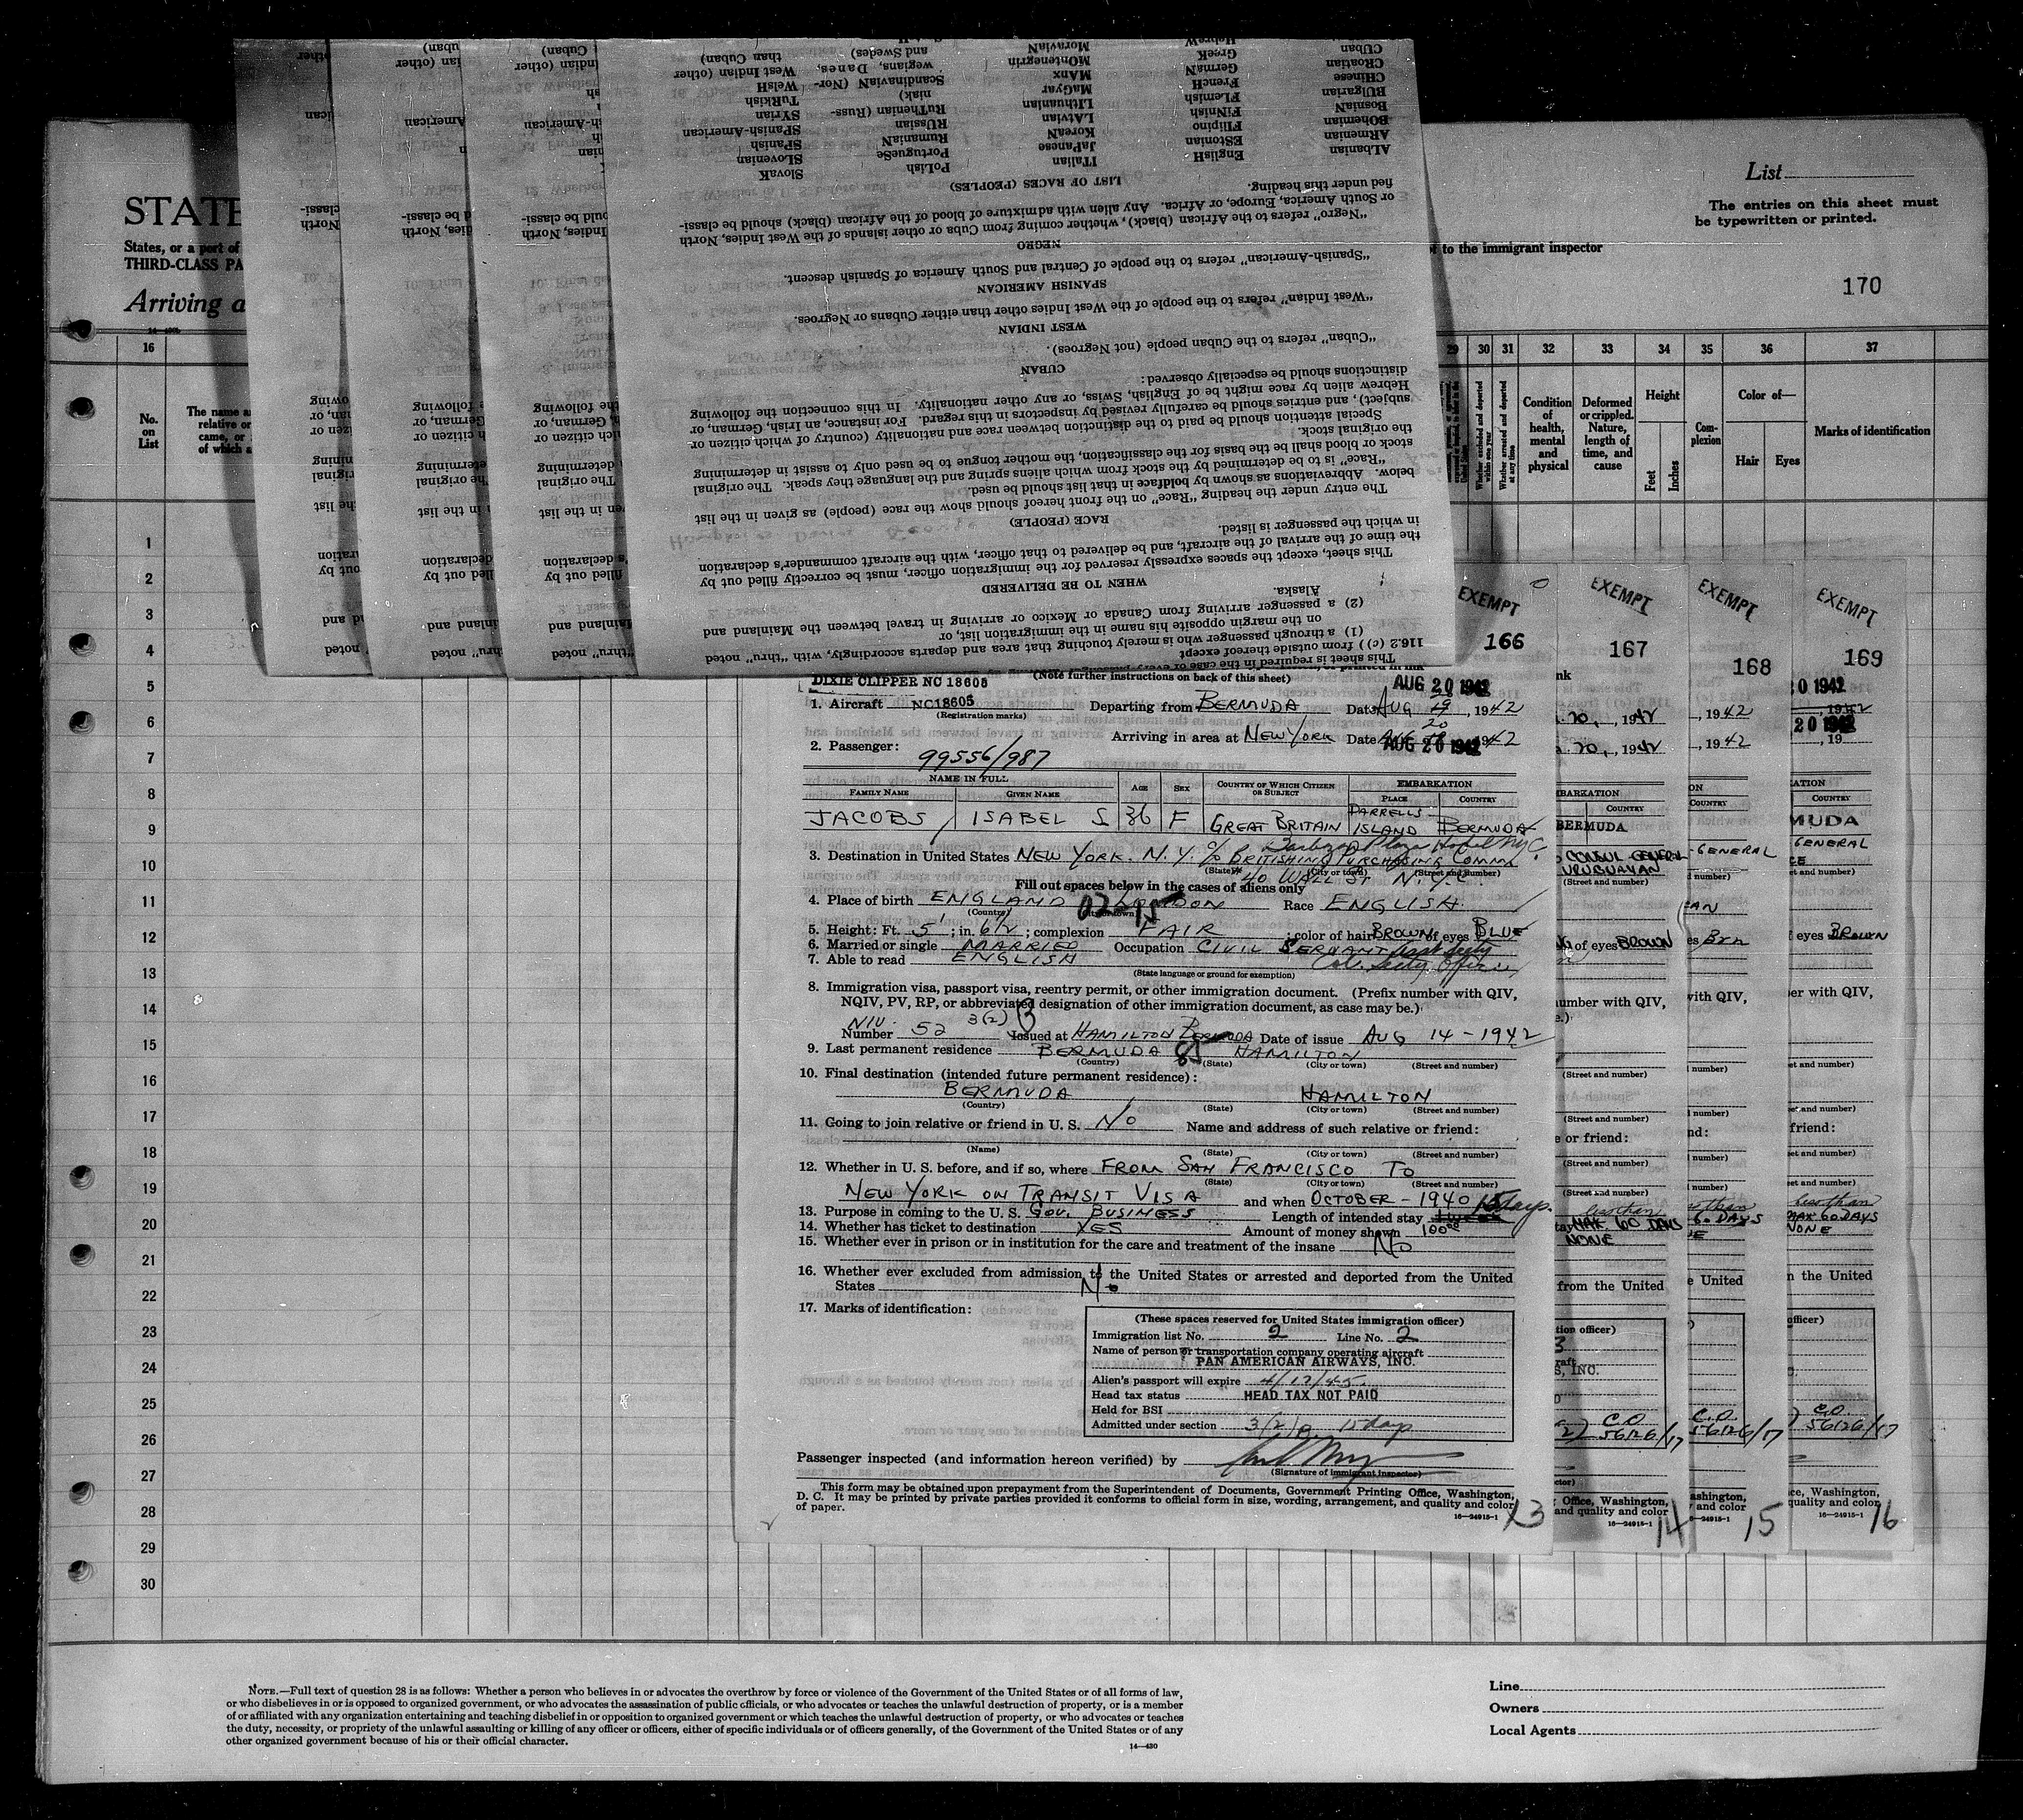 STATE
States, or a port of
THIRD-CLASS PA
Arriving a
List
The entries on this sheet must
be typewritten or printed.
t to the immigrant inspector
170
16
No.
on
List
The name a
relative or
came, or
of which a
29 30 31 32 33 34 35 36 37
Whether excluded and deported within one year
Whether arrested and deported at any time
Condition of health, mental and physical
Deformed or crippled. Nature, length of time, and cause
Height
Feet
Inches
Com-
plexion
Color of—
Hair Eyes
Marks of identification
1
2
3
4
5
6
7
8
9
10
11
12
13
14
15
16
17
18
19
20
21
22
23
24
25
26
27
28
29
30
This sheet is required in the case of every
116.2 (c)) from outside thereof except
(1) a through passenger who is merely touching that area and departs accordingly, with "thru" noted
on the margin opposite his name in the immigration list, or
(2) a passenger arriving from Canada or Mexico or arriving in travel between the Mainland and
Alaska.
WHEN TO BE DELIVERED
This sheet, except the spaces expressly reserved for the immigration officer, must be correctly filled out by
the time of the arrival of the aircraft, and be delivered to that officer, with the aircraft commander's declaration
in which the passenger is listed.
RACE (PEOPLE)
The entry under the heading "Race" on the front hereof should show the race (people) as given in the list
below. Abbreviations as shown by boldface in that list should be used.
"Race" is to be determined by the stock from which aliens spring and the language they speak. The original
stock or blood shall be the basis for the classification, the mother tongue to be used only to assist in determining
the original stock.
Special attention should be paid to the distinction between race and nationality (country of which citizen or
subject), and entries should be carefully revised by inspectors in this regard. For instance, an Irish, German, or
Hebrew alien by race might be of English, Swiss, or any other nationality. In this connection the following
distinctions should be especially observed:
CUBAN
"Cuban" refers to the Cuban people (not Negroes).
WEST INDIAN
"West Indian" refers to the people of the West Indies other than either Cubans or Negroes.
SPANISH AMERICAN
"Spanish-American" refers to the people of Central and South America of Spanish descent.
NEGRO
"Negro" refers to the African (black), whether coming from Cuba or other islands of the West Indies, North
or South America, Europe, or Africa. Any alien with admixture of blood of the African (black) should be classi-
fied under this heading.
LIST OF RACES (PEOPLES)
ALbanian
ARmenian
BOhemian
BosniaN
BUlgarian
CHinese
CRoatian
CUban
EnglisH
EStonian
FIlipino
FiNnish
FLemish
FrencH
GermaN
GreeK
HebreW
ITalian
JaPanese
KoreaN
LAtvian
LIthuanian
MaGyar
MAnx
MOntenegrin
MoraviaN
PoLish
PortugueSe
RumaniaN
RUssian
RuThenian (Russ-
niak)
ScandinaviaN (Nor-
wegians, Danes,
and Swedes)
SlovaK
SLovenian
SPanish
SPanish-American
SYrian
TuRkish
WelsH
West Indian (other
than Cuban)
EXEMPT
166
DIXIE CLIPPER NC 18605
(Note further instructions on back of this sheet)
AUG 20 1942
1. Aircraft NC18605 Departing from BERMUDA Date AUG 19 20, 1942
(Registration marks)
Arriving in area at NEW YORK Date AUG 20 1942 1942
2. Passenger: 99556/987
NAME IN FULL
FAMILY NAME GIVEN NAME AGE SEX COUNTRY OF WHICH CITIZEN OR SUBJECT EMBARKATION
PLACE COUNTRY
JACOBS ISABEL S 36 F GREAT BRITAIN DARRELLS ISLAND BERMUDA
Barbizon Plaza Hotel NYC
3. Destination in United States NEW YORK. N.Y. c/o BRITISH PURCHASING COMM.
(State) (City or town) (Street and number)
40 WALL ST N.Y.C.
Fill out spaces below in the cases of aliens only
4. Place of birth ENGLAND LONDON Race ENGLISH.
(Country) (City or town)
5. Height: Ft. 5; in. 6 1/2; complexion FAIR; color of hair BROWN; of eyes BLUE
6. Married or single MARRIED Occupation CIVIL SERVANT Asst Secty
7. Able to read ENGLISH Col. Secty. Office
(State language or ground for exemption)
8. Immigration visa, passport visa, reentry permit, or other immigration document. (Prefix number with QIV,
NQIV, PV, RP, or abbreviated designation of other immigration document, as case may be.)
NIV. 3(2) B
Number 52 Issued at HAMILTON BERMUDA Date of issue AUG 14 - 1942
9. Last permanent residence BERMUDA 85 HAMILTON
(Country) (State) (City or town) (Street and number)
10. Final destination (intended future permanent residence):
BERMUDA HAMILTON
(Country) (State) (City or town) (Street and number)
11. Going to join relative or friend in U. S. No Name and address of such relative or friend:
(Name) (State) (City or town) (Street and number)
12. Whether in U. S. before, and if so, where FROM SAN FRANCISCO TO
(State) (City or town) (Street and number)
NEW YORK ON TRANSIT VISA and when OCTOBER - 1940
13. Purpose in coming to the U. S. GOV. BUSINESS Length of intended stay 15 days.
14. Whether has ticket to destination YES Amount of money shown 100 00
15. Whether ever in prison or in institution for the care and treatment of the insane No
16. Whether ever excluded from admission to the United States or arrested and deported from the United
States No
17. Marks of identification:
(These spaces reserved for United States immigration officer)
Immigration list No. 2 Line No. 2
Name of person or transportation company operating aircraft
PAN AMERICAN AIRWAYS, INC.
Alien's passport will expire 4/17/45.
Head tax status HEAD TAX NOT PAID
Held for BSI
Admitted under section 3(2)B. 15 days
Passenger inspected (and information hereon verified) by
(Signature of immigrant inspector)
This form may be obtained upon prepayment from the Superintendent of Documents, Government Printing Office, Washington,
D. C. It may be printed by private parties provided it conforms to official form in size, wording, arrangement, and quality and color
of paper.
16—24915-1
13
EXEMPT
167
nk
BERMUDA
CONSUL-GENERAL
URUGUAYAN
(Street and number)
of eyes BROWN
less than
MAX 60 DAYS
NONE
from the United
C.O.
56126/17
16—24915-1
14
EXEMPT
168
, 1942
, 1942
GENERAL
Brn
less than
60 DAYS
e United
C.O.
56126/17
15
EXEMPT
169
20 1942
20 1942
COUNTRY
MUDA
GENERAL
eyes BROWN
er with QIV,
friend:
less than
MAX 60 DAYS
NONE
n the United
C.O.
56126/17
16—24915-1
16
NOTE.—Full text of question 28 is as follows: Whether a person who believes in or advocates the overthrow by force or violence of the Government of the United States or of all forms of law,
or who disbelieves in or is opposed to organized government, or who advocates the assassination of public officials, or who advocates or teaches the unlawful destruction of property, or is a member
of or affiliated with any organization entertaining and teaching disbelief in or opposition to organized government or which teaches the unlawful destruction of property, or who advocates or teaches
the duty, necessity, or propriety of the unlawful assaulting or killing of any officer or officers, either of specific individuals or of officers generally, of the Government of the United States or of any
other organized government because of his or their official character.
14—430
Line
Owners
Local Agents